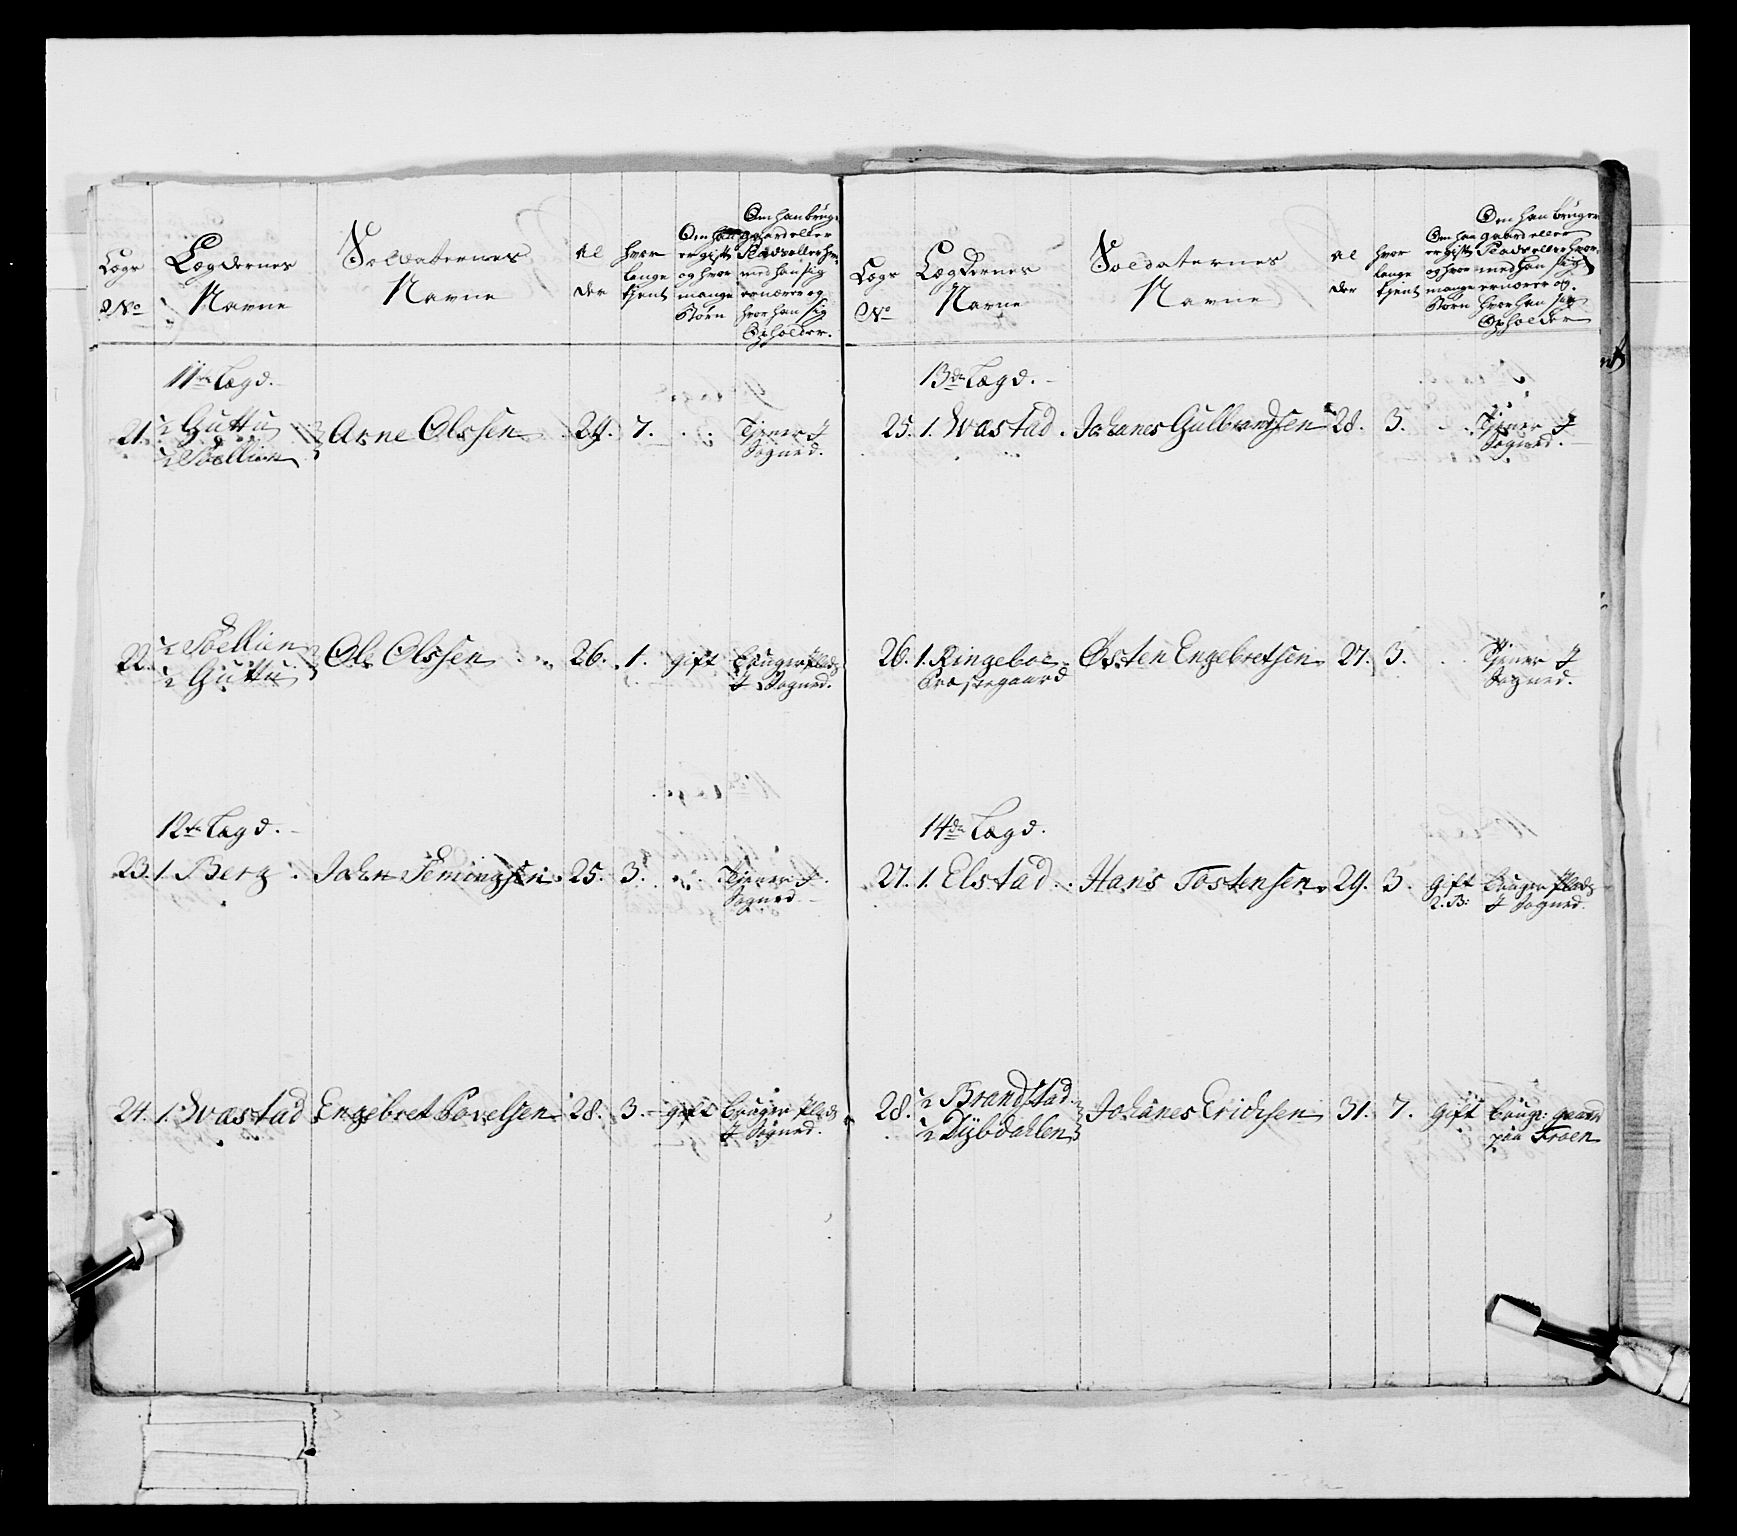 Lægs
No
Lægdernes
Navne
Soldaternes
Navne
Al
der
hvor
længe
tjent
Om han
er gift
og hvor
mange
Børn
Om han bruger
gaard eller
Plads eller hvor
med han sig
ernærer og
hvor han sig
Opholder.
11te Lægd.
21. ½ Guttu
½ Søellien
Arne Olssen 29. 7. Tjener J
Sogned.
22. ½ Søellien
½ Guttu
Ole Olssen 26. 1. gift bruger Plads
J Sogned.
12te Lægd.
23. 1. Berg. John Femingsen 25. 3. Tjener J
Sogned.
24. 1. Svastad Engebret Povelsen 28. 3. gift bruger Plads
J Sogned.
Lægs
No
Lægdernes
Navne
Soldaternes
Navne
Al
der
hvor
længe
tjent
Om han
er gift
og hvor
mange
Børn
Om han bruger
gaard eller
Plads eller hvor
med han sig
ernærer og
hvor han sig
Opholder
13de Lægd.
25. 1. Svastad. Johanes Gulbrandsen 28. 3. Tjener J
Sogned.
26. 1. Ringeboe
Præstegaard
Østen Engebretsen 27. 3. Tjener J
Sogned.
14de Lægd.
27. 1. Elstad. Hans Tostensen 29. 3. gift
2. B:
bruger Plads
J Sogned.
28. ½ Brandstad
½ Dybdahlen
Johanes Erichsen 31. 7. gift brug: gaard
paa Froen